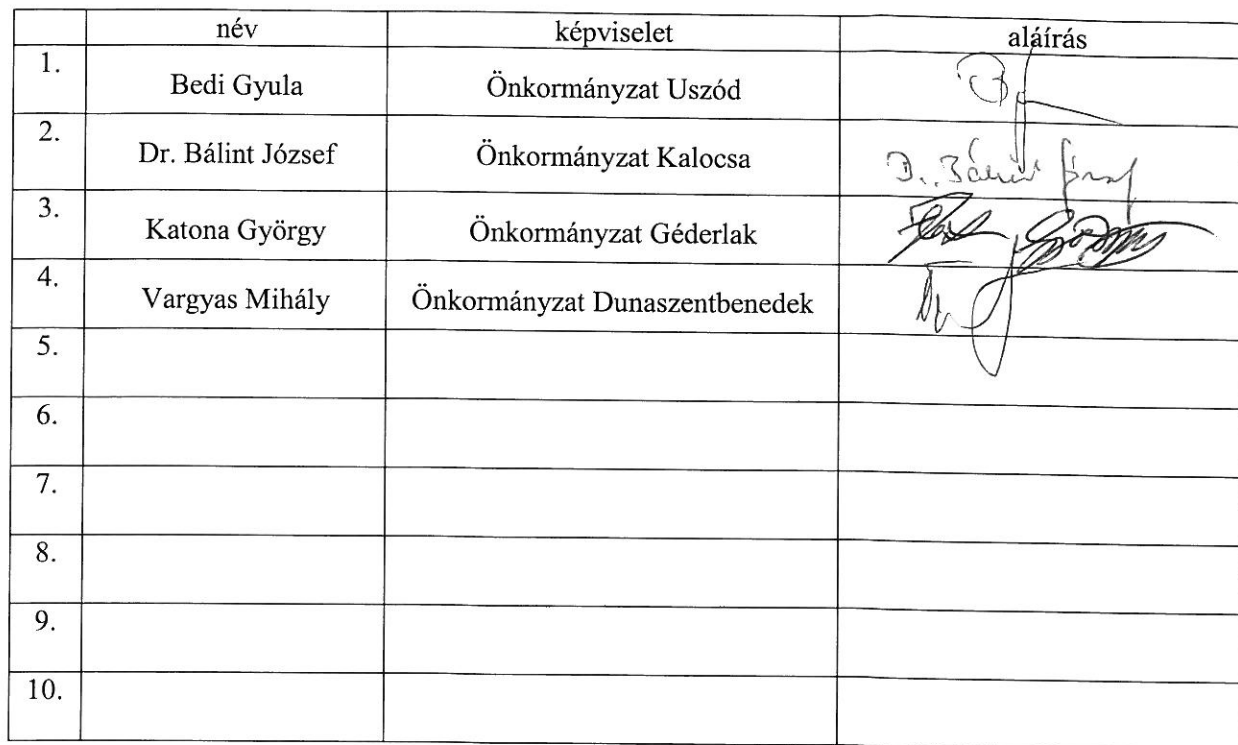 név képviselet aláírás
1. Bedi Gyula Önkormányzat Uszód
2. Dr. Bálint József Önkormányzat Kalocsa Dr. Bálint József
3. Katona György Önkormányzat Géderlak
4. Vargyas Mihály Önkormányzat Dunaszentbenedek
5.
6.
7.
8.
9.
10.